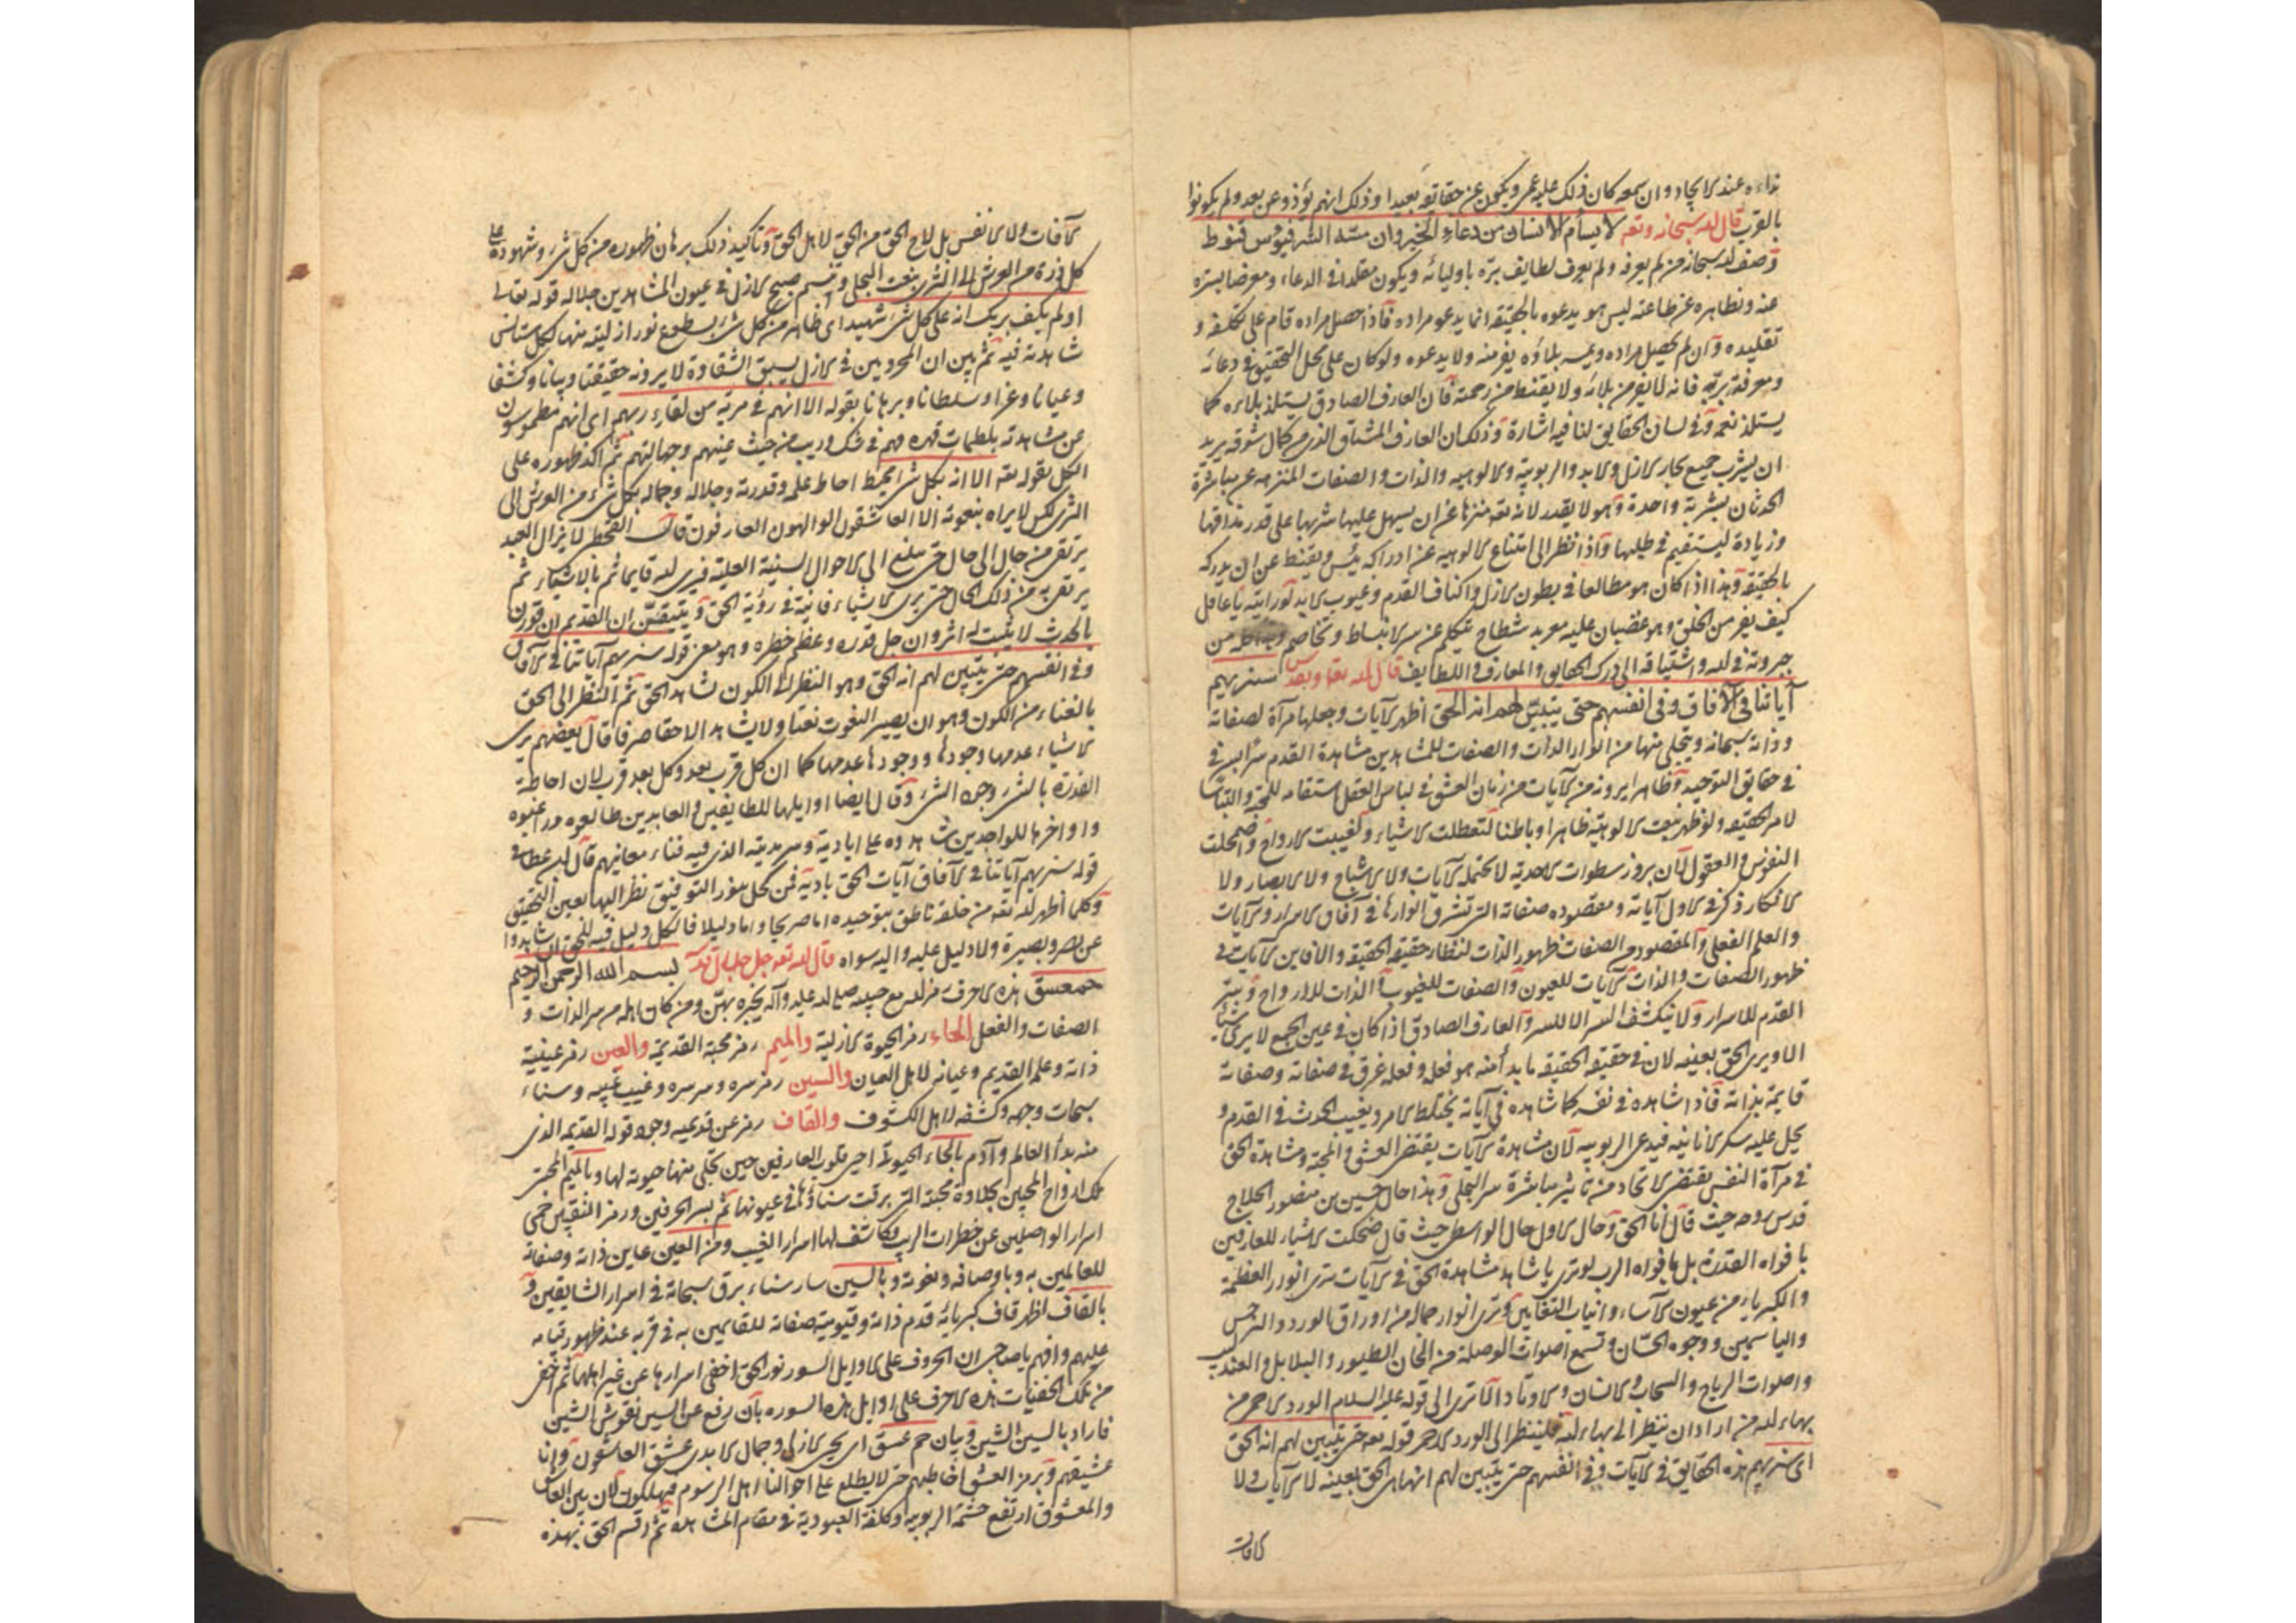 نداءه عند الايجاد وان سمعه كان ذلك عليه عمى ويكون عن حقايقه بعيدا وذلك انهم نودوا عن بعد ولم يكونوا
بالقرب قال الله سبحانه وتعه لا يسأم الانسان من دعاء الخير وان مسّه الشر فيؤس قنوط
وصف الله سبحانه من لم يعرفه ولم يعرف لطايف برّه باوليائه ويكون مقلدا في الدعاء ومعرضا بسرّه
عنه وبظاهره عن طاعته ليس هو يدعوه بالحقيقة انما يدعو مراده فاذا حصل مراده قام على تكلفه و
تقليده وان لم يحصل مراده ويمسه بلاؤه يفر منه ولا يدعوه ولو كان على محل التحقيق في دعائه
ومعرفة بربّه فانه لا يفر من بلائه ولا يقنط من رحمته فان العارف الصادق يستلذ بلاءه كما
يستلذ نعمه وفي لسان الحقايق لنا فيه اشارة وذلك ان العارف المشتاق الذي من كمال شوقه يريد
ان يشرب جميع بحار الازل والابد والربوبية والالوهيه والذات والصفات المنزهه عن مباشرة
الحدثان بشربة واحدة وهو لا يقدر لانه تعه منزها عن ان يسهل عليها شربها على قدر مذاقها
وزيادة ليستقيم في طلبها واذا نظر الى امتناع الالوهيه عن ادراكه يئس ويقنط عن ان يدركه
بالحقيقة وهذا اذا كان هو مطالعا في بطون الازل واكناف القدم وغيوب الابد لو رايته يا عاقل
كيف يفر من الخلق وهو غضبان عليه معربد شطاح يتكلم عن سر الانبساط ويخاصم من
جبروته في الله واشتياقه الى درك الحقايق والمعارف واللطايف قال الله تعا وتقدس سنريهم
آياتنا في الآفاق وفي انفسهم حتى يتبيّن لهم انه الحق اظهر الآيات وجعلها مرآة لصفاته
وذاته سبحانه ويتجلى منها من انوار الذات والصفات للمشاهدين مشاهدة القدم
في حقايق التوحيد وظاهرا يرونه من الآيات من زمان العشق في لباس العقل استقامه للمحبة
لامر الحقيقه ولو ظهر بنعت الالوهيّة ظاهرا وباطنا لتعطلت الاشياء وتغيبت الارواح واضمحلت
النفوس والعقول لان بروز سطوات الاحدية لا تحتمله الآيات ولا الاشباح ولا الابصار ولا
الافكار ذكر في الاول آياته ومقصوده صفاته التي تشرق انوارها في آفاق الاسرار والآيات
والعلم الفعلي والمقصود من الصفات ظهور الذات لنظار حقيقة الحقيقة الآيات في
ظهور الصفات والذات الآيات للعيون والصفات للغيوب والذات للارواح وسر
القدم للاسرار ولا ينكشف السر الا للسر والعارف الصادق اذا كان في عين الجمع لا يرى شيئا
الا ويرى الحق بعينه لان في حقيقة الحقيقه ما بدأ منه هو فعله وفعله غرق في صفاته وصفاته
قايمة بذاته فاذا شاهده في نفسه كما شاهده في آياته يختلط الامر ويغيب الحدث في القدم و
يحل عليه سكر الانانيه فيدعى الربوبيه لان مشاهدة الآيات يقتضى العشق والمحبة ومشاهدة الحق
في مرآة النفس يقتضى الاتحاد من تاثير مباشرة سر التجلى وهذا حال حسين بن منصور الحلاج
قدس روحه حيث قال انا الحق وحال الاول حال الواسطى حيث قال ضحكت الاشياء للعارفين
بافواه القدرة بل بافواه الرب لو ترى يا شاهد مشاهدة الحق في الآيات ترى انوار العظمة
والكبرياء من عيون الآساد وانياب الثعابين وترى انوار جماله من اوراق الورد والنرجس
والياسمين ووجوه الحسان وتسمع اصوات الوصلة من الحان الطيور والبلابل والعندليب
واصوات الرياح والسحاب والانسان والاوتاد الا ترى الى قوله عليه السلام الورد الاحمر من
بهاء الله من اراد ان ينظر الى بهاء الله فلينظر الى الورد الاحمر قوله تعه حتى يتبين لهم انه الحق
اى سنريهم هذه الحقايق في الآيات وفي انفسهم حتى يتبين لهم انها هى الحق بعينه لا الآيات ولا
الآفات
الآفات ولا الانفس بل لاح الحق من الحق لاهل الحق وتاكيد ذلك برهان ظهوره من كل شئ وشهوده على
كل ذرة من العرش الى الثرى بنعت التجلى وتبسم صبح الازل في عيون المشاهدين جلاله قوله تعالى
اولم يكف بربك انه على كل شئ شهيد اى ظاهر من كل شئ بسطوع نور ازليته منها لكل مستانس
شاهدته فيه ثم بين ان المحرومين في الازل بسبق الشقاوة لا يرونه حقيقتا وبيانا وكشفا
وعيانا وعزا وسلطانا وبرهانا بقوله الا انهم في مرية من لقاء ربهم اى انهم مطموسون
عن مشاهدته بلطمات قهره فهم في شك وريب من حيث غيبهم وجهالتهم ثم اكد ظهوره على
الكل بقوله تعه الا انه بكل شئ محيط احاط علمه وقدرته وجلاله وجماله بكل شئ من العرش الى
الثرى لكن لا يراه بنعوته الا العاشقون الوالهون العارفون قال القحطبى لا يزال العبد
يرتقى من حال الى حال حتى يبلغ الى الاحوال السنية العلية فيرى الله قايما ثم بالاشياء ثم
يرتقى به من ذلك الحال حتى يرى الاشياء فانية في رؤية الحق ويتيقن ان القديم ان قورن
بالحدث لا يثبت له اثر وان جل قدره وعظم خطره وهو معنى قوله سنريهم آياتنا في الآفاق
وفي انفسهم حتى يتبين لهم انه الحق وهو النظر الى الكون بشاهد الحق ثم النظر الى الحق
بالغناء من الكون وهو ان يصير النعوت نعتا ولا يشاهد الا حقا صرفا قال بعضهم يرى
الاشياء عدمها وجودها ووجودها عدمها كما ان كل قرب بعد وكل بعد قرب لان احاطة
القدرة بالشئ وجود الشئ وقال ايضا اوايلها للطايفين والعابدين طالعوه وراعبوه
واواخرها للواجدين شاهدوه على اباديته وسرمديته الذى فيه فناء معانيهم قال ابن عطا في
قوله سنريهم آياتنا في الآفاق آيات الحق بادية فمن كحل بنور التوفيق نظر اليها بعين التحقيق
وكلما اظهر الله تعه من خلقه ناطق بتوحيده اما صريحا واما دليلا فالكل دليل فيه للحق ان شاهدوا
عن بصر وبصيرة ولا دليل عليه واليه سواه قال الله تعه جل جلاله بسم الله الرحمن الرحيم
حمعسق هذه الاحرف من الله مع حبيبه صلى الله عليه وآله يخبره بهن ومن كان اهله من سر الذات و
الصفات والفعل الحاء رمز الحيوة الازلية والميم رمز محبة القديمة والعين رمز عينية
ذاته وعلمه القديم وعيانه لاهل العيان والسين رمز سره وسر سره وغيب غيبه وسناء
سبحات وجهه وكشفه لاهل الكشوف والقاف رمز عن قدمه وجوده قوله القديم الذى
منه بدأ العالم وآدم بالحاء الحيوة احيى قلوب العارفين حين تجلى منها حيوة لها وبالميم المحبة
تلك ارواح المحبين بحلاوة محبته التى برقت سناؤها في عيونها ثم بسر الحرفين ورمز النقيين حمى
اسرار الواصلين عن خطرات الريب وكاشف لها اسرار الغيب ومن العين عاين ذاته وصفاته
للعالمين به وباوصافه ونعوته وبالسين سار سناء برق سبحاته في اسرار الشايقين و
بالقاف اظهر قاف كبريائه قدم ذاته وقيوميته صفاته للقايمين به في قربه عند ظهور قيامه
عليهم وافهم يا صاحبى ان الحروف على اوايل السور نور الحق اخفى اسرارها عن غير اهلها ثم اخفى
من تلك الخفيات هذه الاحرف على اوايل هذه السوره بان رفع عن السين نقوش الشين
فاراد بالسين الشين وبيان حم عسق اى بحبى الازلى وجمال الابدى عشق العاشقون وانا
عشيقهم وبرمز العشق اخاطبهم حتى لا يطلع على احوالنا اهل الرسوم فيهلكون لان بين العاشق
والمعشوق ارتفع حشمة الربوبيه وكلفة العبوديه في مقام المشاهده ثم اقسم الحق بهذه